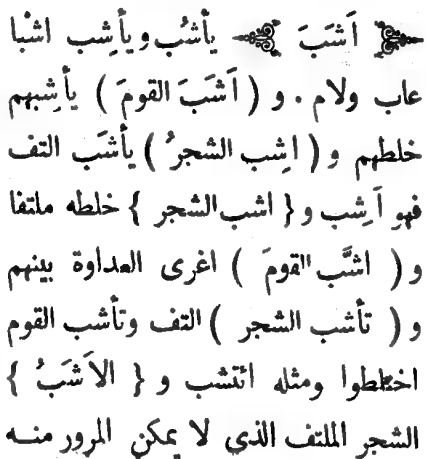 أَشَبَ يأشُب ويأشِب اشْبا
عاب ولام . و ( أَشَبَ القومَ ) يأشِبهم
خلطهم و ( اشِب الشجرُ ) يأشَب التف
فهو أَشِب و { اشب الشجر } خلطه ملتفا
و ( اشَّب القومَ ) اغرى العداوة بينهم
و ( تأشب الشجر ) التف وتأشب القوم
اختلطوا ومثله ائتشب و { الاَشَبُ }
الشجر الملتف الذي لا يمكن المرور منه